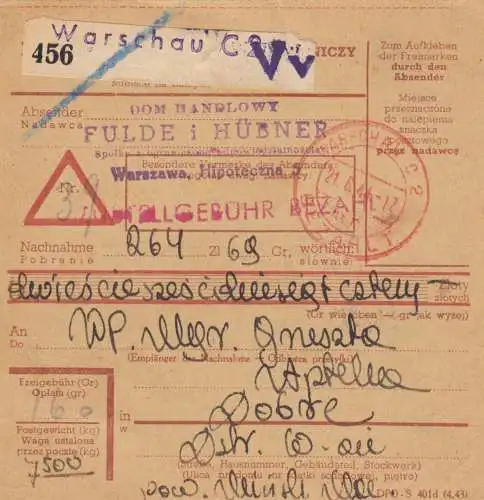 Warschau C 2
456
NICZY
Vv
Zum Aufkleben
der Freimarken
durch den
Absender
Miejsce
przeznaczone
do nalepienia
znaczka
pocztowego
przez nadawcę
Absender
Nadawca
DOM HANDLOWY
FULDE i HÜBNER
Besondere Vermerke des Absenders
Warszawa, Hipoteczna 5
Nr.
ZOLLGEBÜHR BEZAHLT
21. 6. 44-17
C2
Nachnahme 264 Zl 69 Gr, wörtlich:
Pobranie słownie:
dwieście sześćdziesiąt cztery
Zloty
złotych
(Gr wie oben — gr jak wyżej)
An
Do
WP. Mgr.
(Empfänger der Nachnahme – Odbiorca przesyłki)
Apteka
Freigebühr (Gr)
Opłata (gr)
160
in
w
Dobre
Postgewicht (kg)
Waga ustalona
przez pocztę (kg)
7500
(Straße, Hausnummer, Gebäudeteil, Stockwerk)
(Ulica, nr domu, nr części budynku, piętro)
pow. Mińsk Maz
DPO-S 401d (4.43)